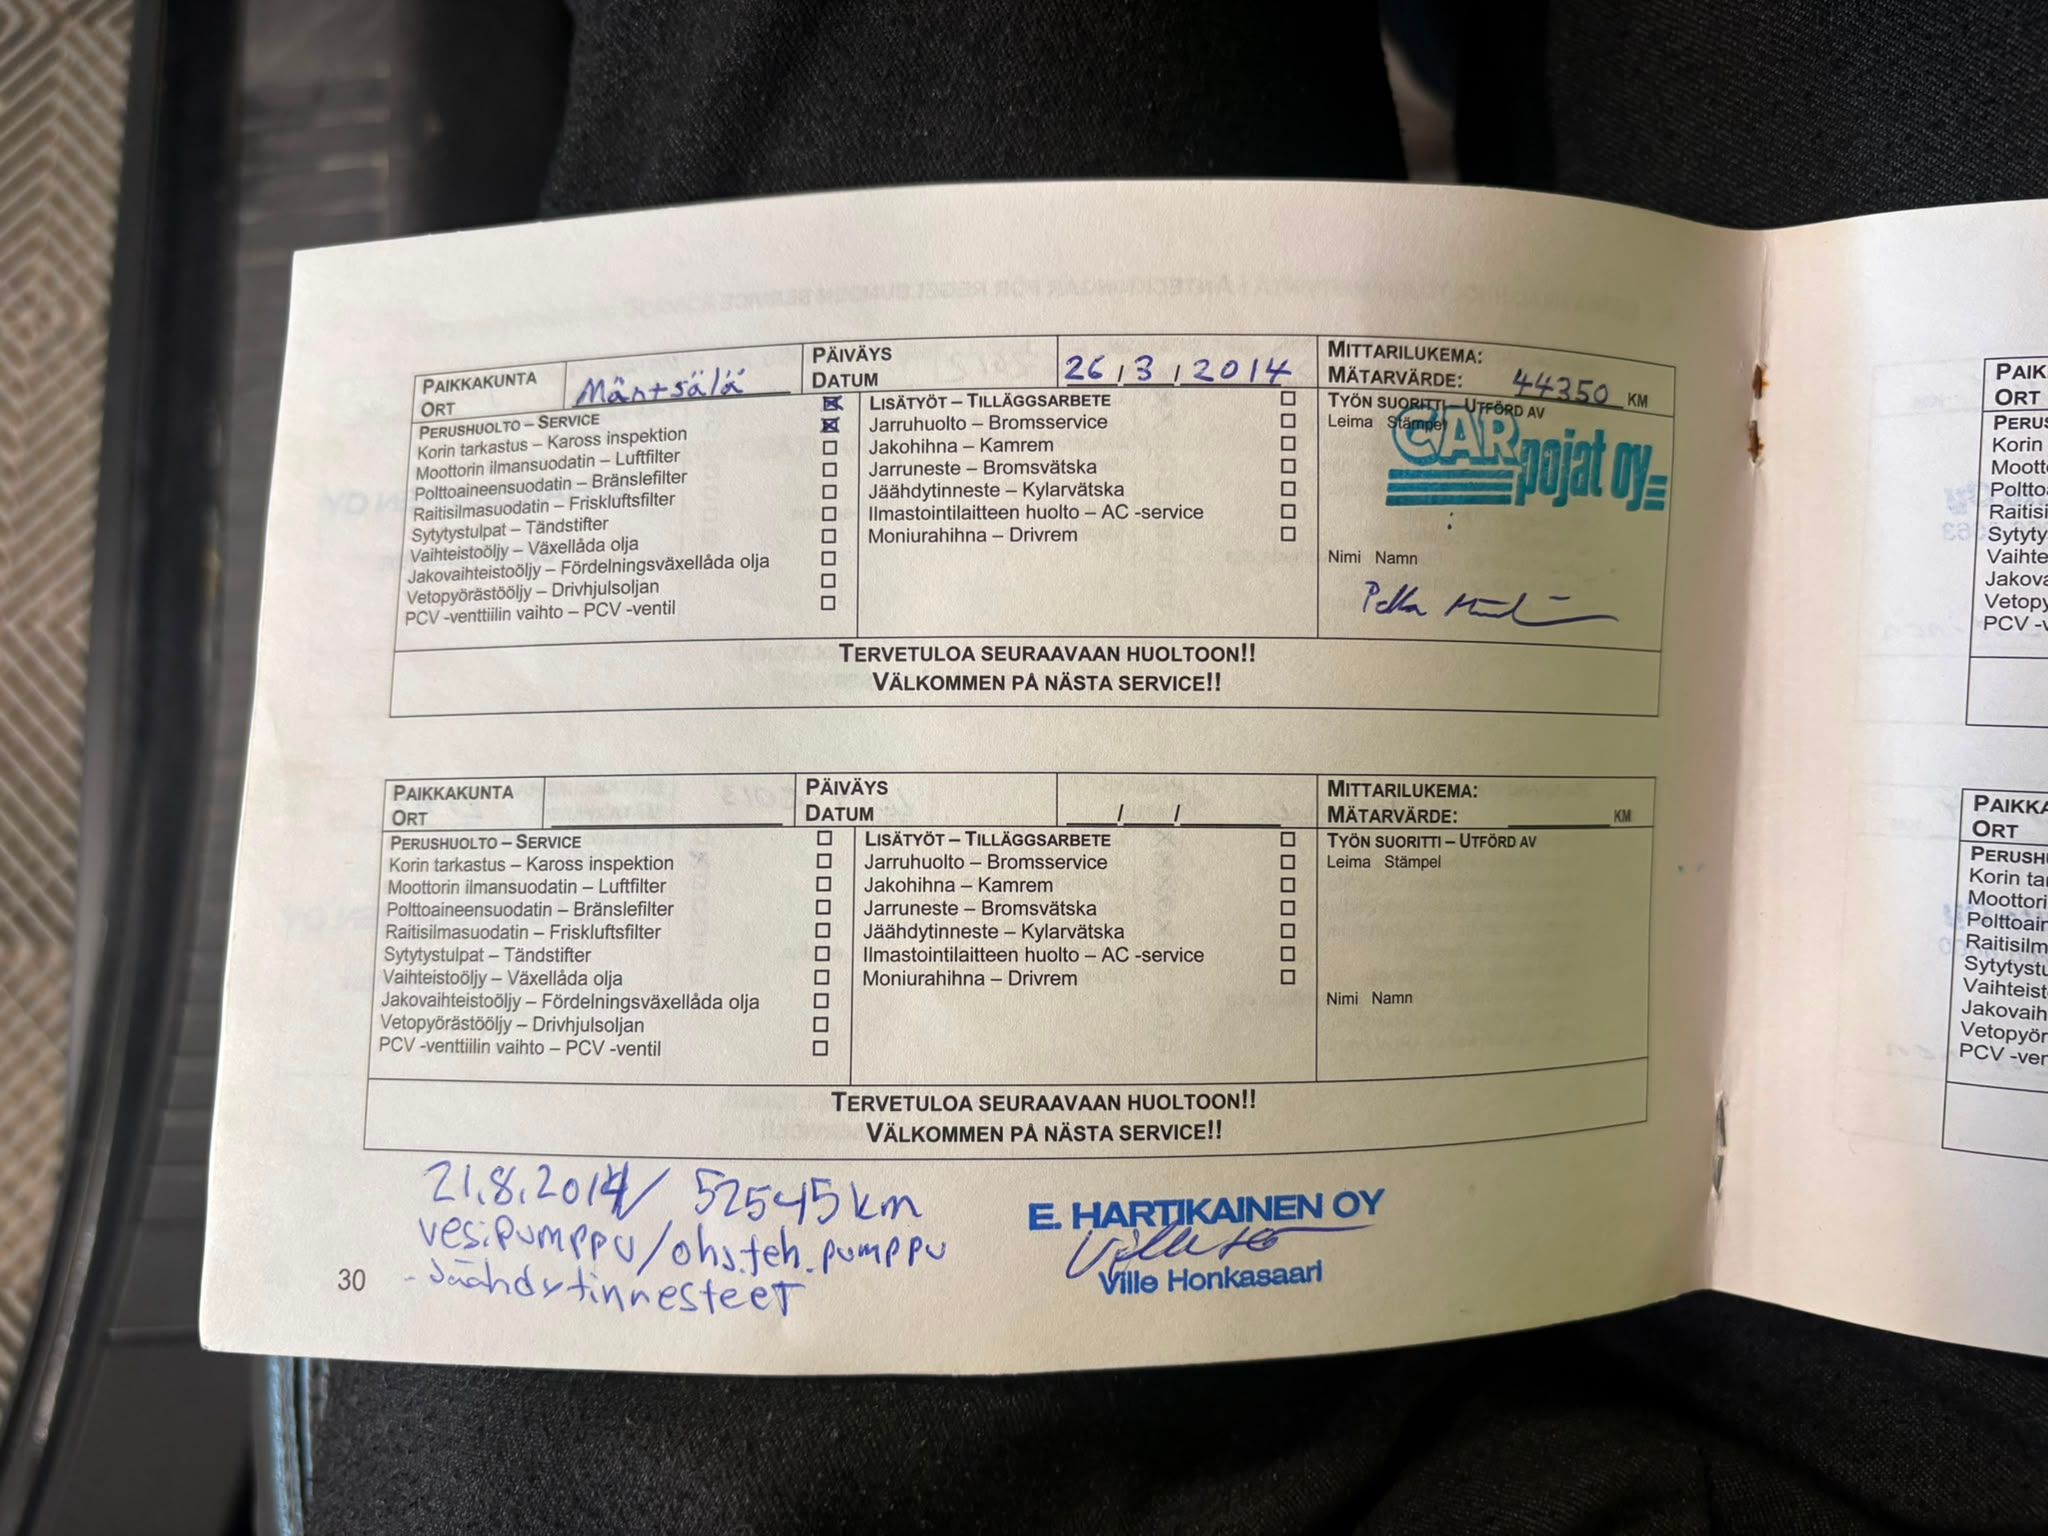 PAIKKAKUNTA
ORT
Mäntsälä
PÄIVÄYS
DATUM
26/3/2014
MITTARILUKEMA:
MÄTARVÄRDE: 44350 KM
PERUSHUOLTO – SERVICE
Korin tarkastus – Kaross inspektion
Moottorin ilmansuodatin – Luftfilter
Polttoaineensuodatin – Bränslefilter
Raitisilmasuodatin – Friskluftsfilter
Sytytystulpat – Tändstifter
Vaihteistoöljy – Växellåda olja
Jakovaihteistoöljy – Fördelningsväxellåda olja
Vetopyörästööljy – Drivhjulsoljan
PCV -venttiilin vaihto – PCV -ventil
LISÄTYÖT – TILLÄGGSARBETE
Jarruhuolto – Bromsservice
Jakohihna – Kamrem
Jarruneste – Bromsvätska
Jäähdytinneste – Kylarvätska
Ilmastointilaitteen huolto – AC -service
Moniurahihna – Drivrem
TYÖN SUORITTI – UTFÖRD AV
Leima Stämpel
CAR pojat oy
Nimi Namn
TERVETULOA SEURAAVAAN HUOLTOON!!
VÄLKOMMEN PÅ NÄSTA SERVICE!!
PAIKKAKUNTA
ORT
PÄIVÄYS
DATUM
/ /
MITTARILUKEMA:
MÄTARVÄRDE: KM
PERUSHUOLTO – SERVICE
Korin tarkastus – Kaross inspektion
Moottorin ilmansuodatin – Luftfilter
Polttoaineensuodatin – Bränslefilter
Raitisilmasuodatin – Friskluftsfilter
Sytytystulpat – Tändstifter
Vaihteistoöljy – Växellåda olja
Jakovaihteistoöljy – Fördelningsväxellåda olja
Vetopyörästööljy – Drivhjulsoljan
PCV -venttiilin vaihto – PCV -ventil
LISÄTYÖT – TILLÄGGSARBETE
Jarruhuolto – Bromsservice
Jakohihna – Kamrem
Jarruneste – Bromsvätska
Jäähdytinneste – Kylarvätska
Ilmastointilaitteen huolto – AC -service
Moniurahihna – Drivrem
TYÖN SUORITTI – UTFÖRD AV
Leima Stämpel
Nimi Namn
TERVETULOA SEURAAVAAN HUOLTOON!!
VÄLKOMMEN PÅ NÄSTA SERVICE!!
21.8.2014/ 52545km
vesipumppu/ohj.teh.pumppu
- Jäähdytinnesteet
E. HARTIKAINEN OY
Ville Honkasaari
30
ORT